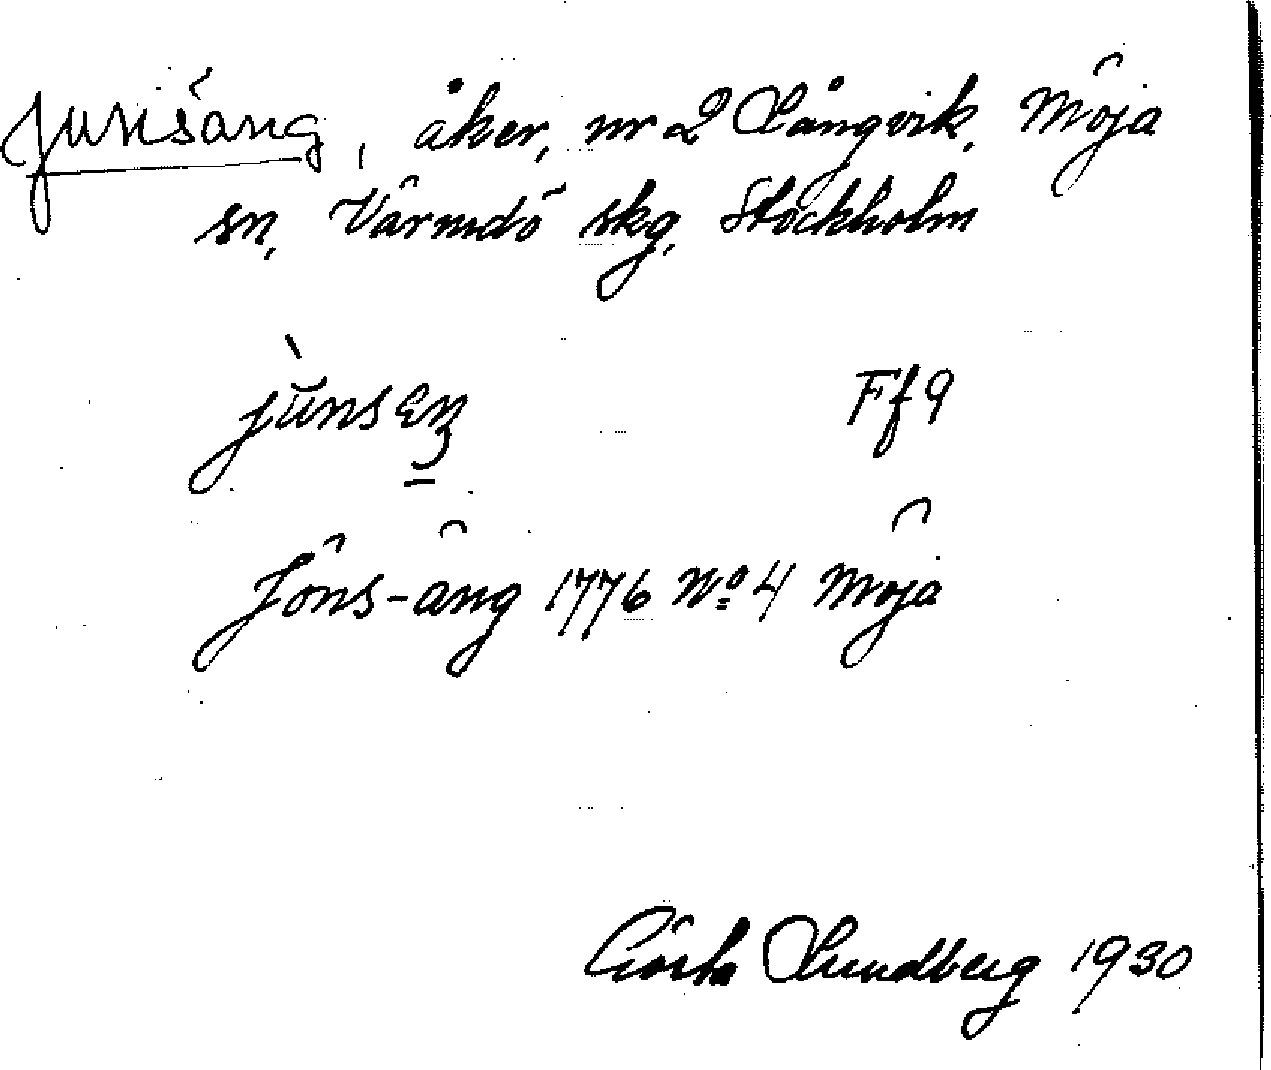 Junsäng, åker, nr 2 Långvik, Möja
sn, Värmdö skg, Stockholm
jùnsεŋ Ff9
Jöns-äng 1776 No 4 Möja
Gösta Lundberg 1930